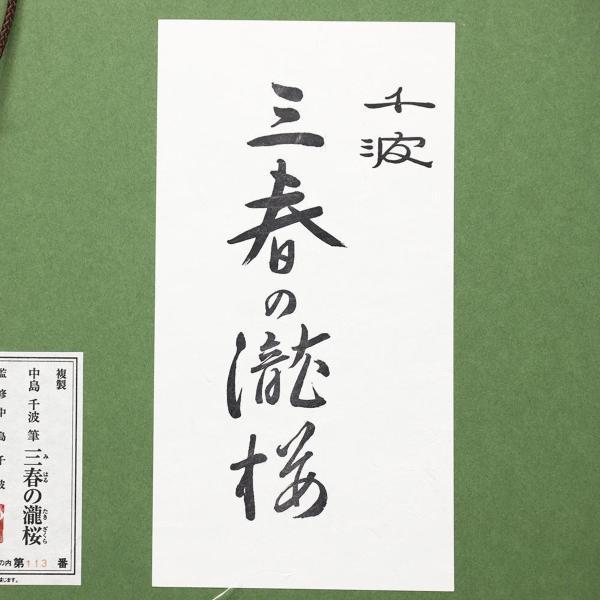 千波
三春の瀧桜
複製
中島 千波 筆
三春の瀧桜
みはる たきざくら
監修 中島千波
の内 第113番